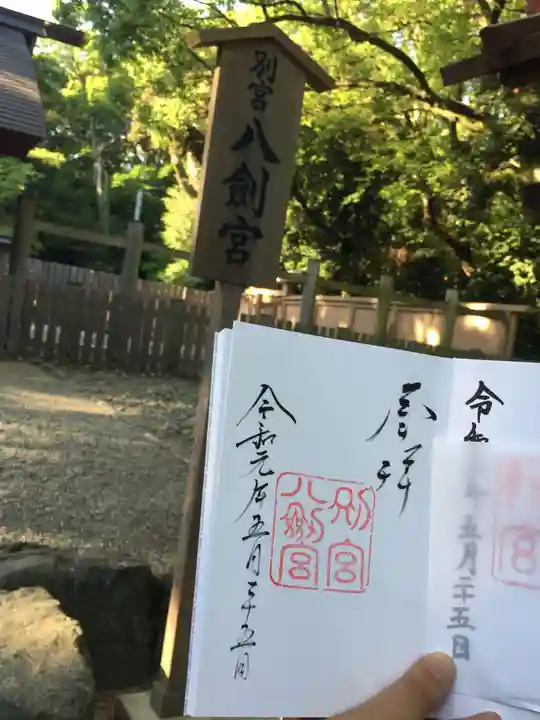 別宮
八劍宮
令和
年五月二十五日
宮
奉拝
別宮
八剣宮
令和元年五月二十五日